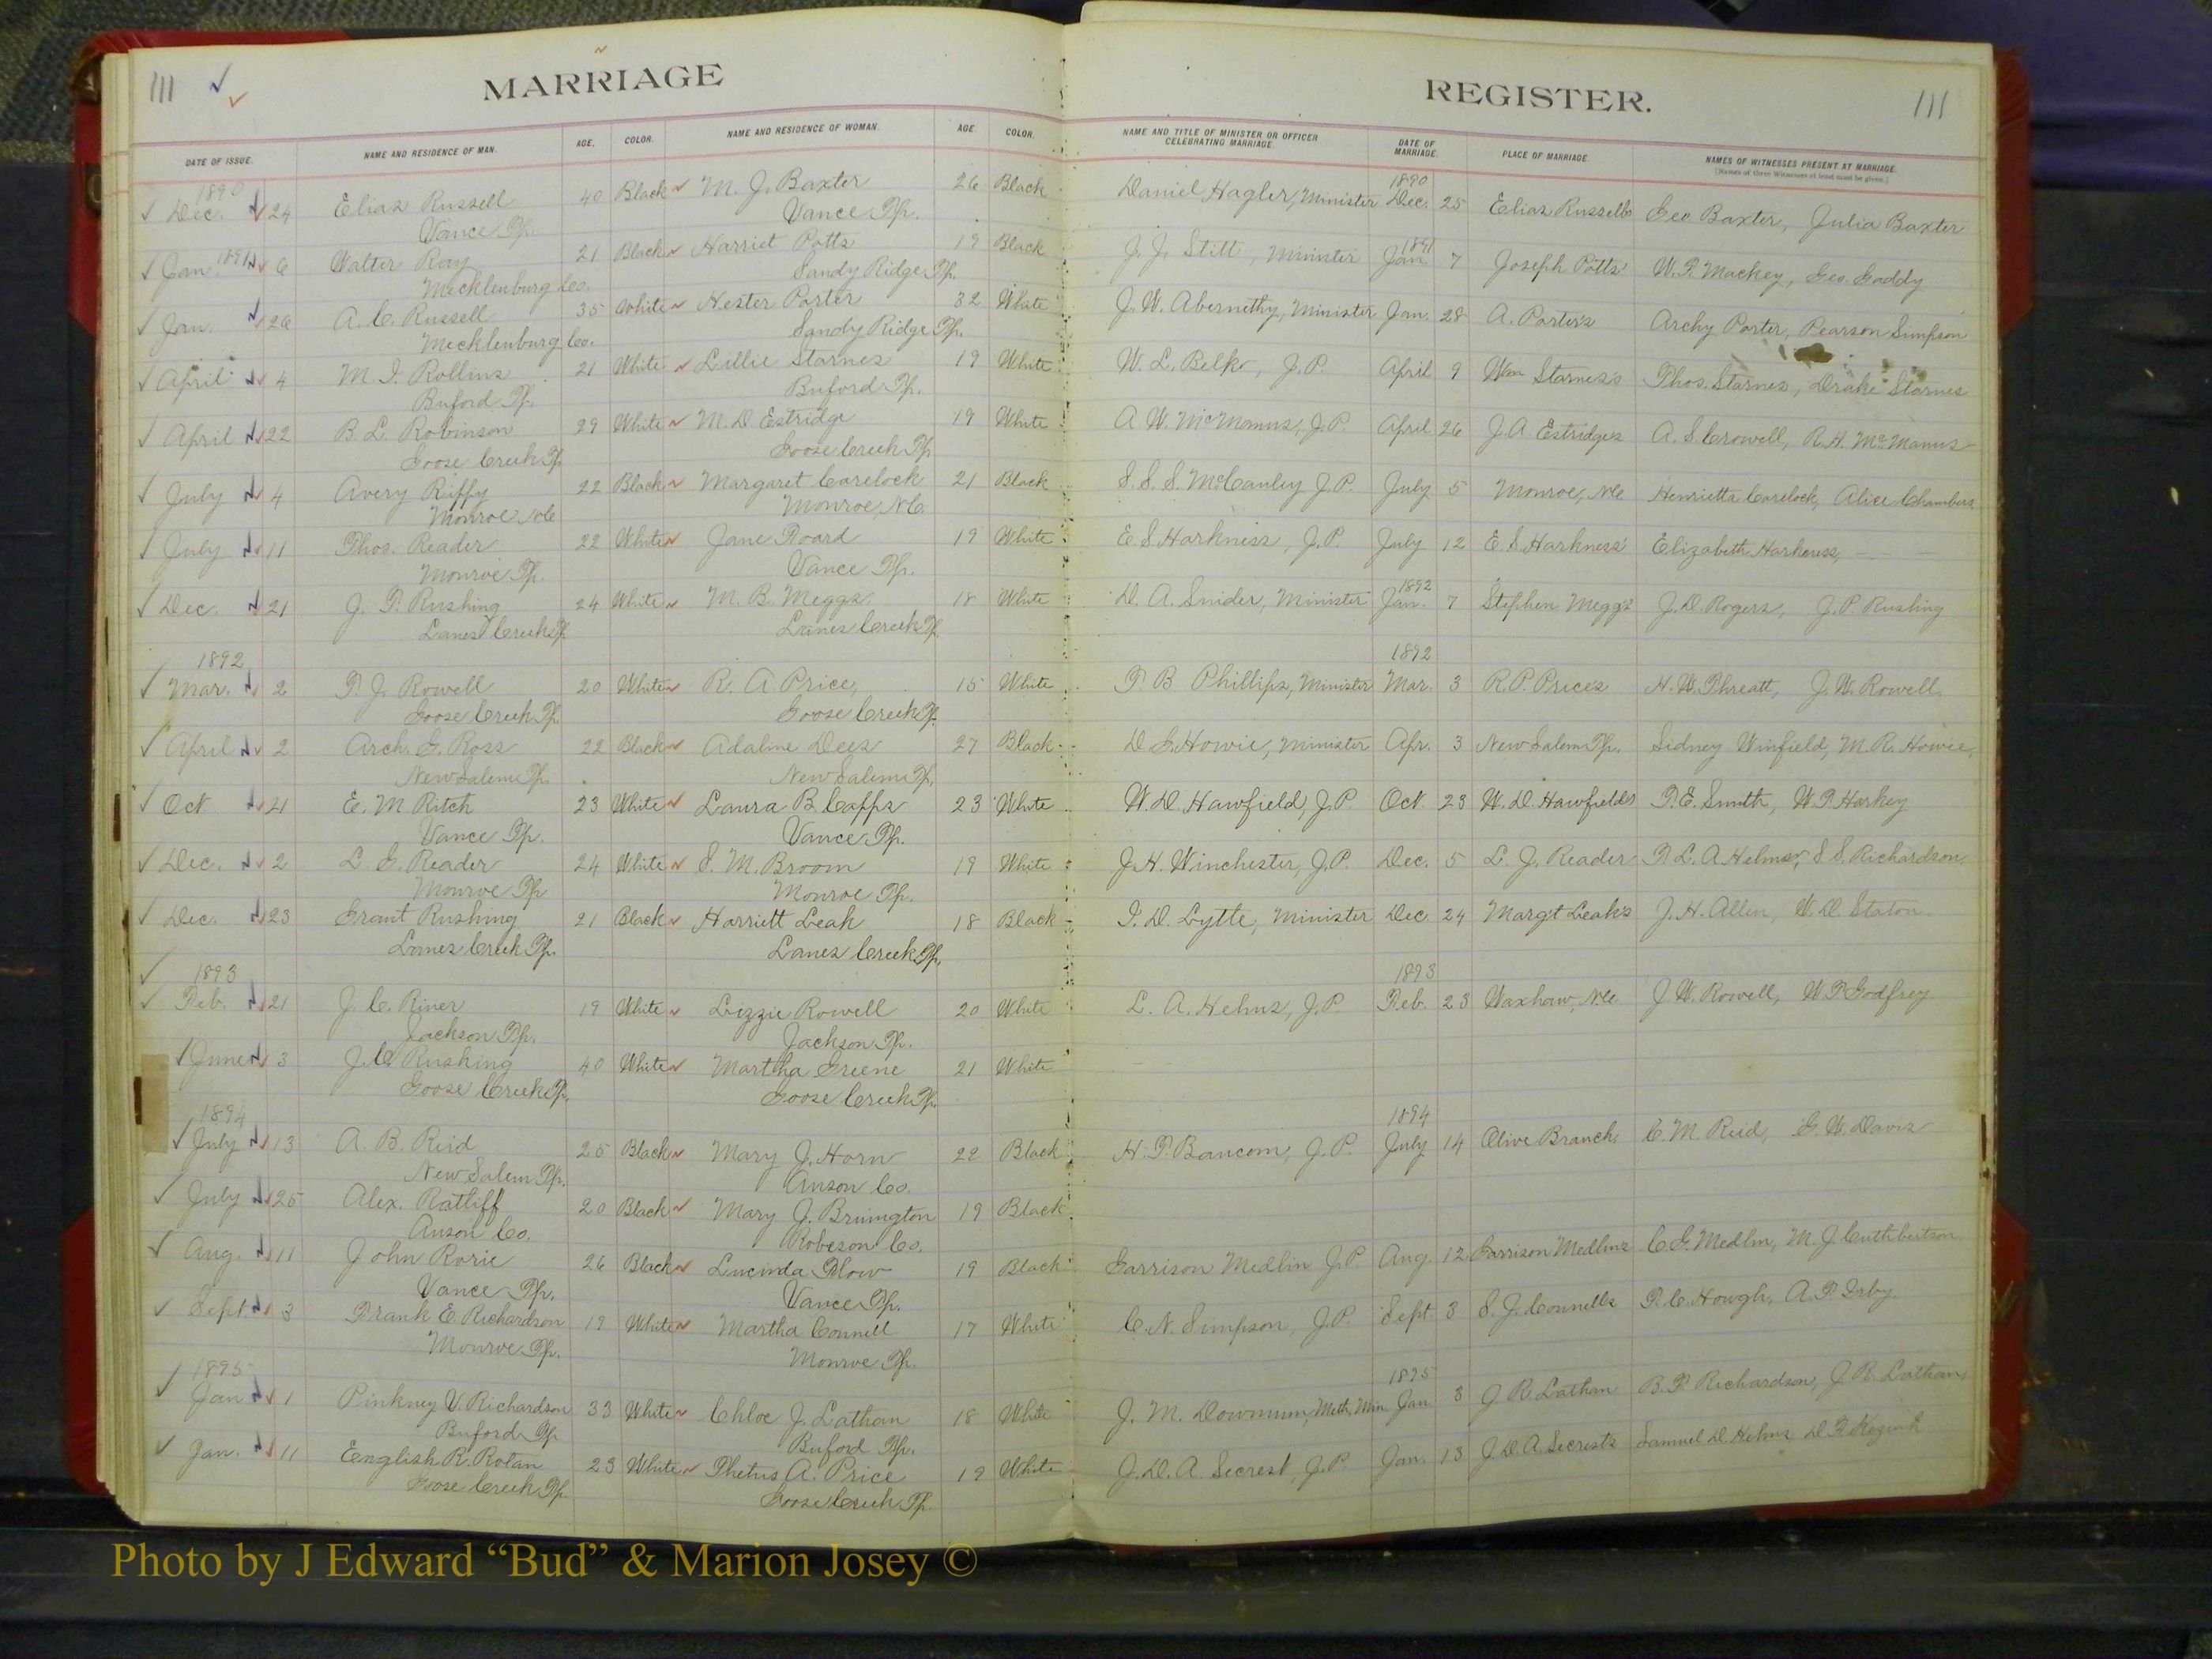 111
MARRIAGE
REGISTER.
111
DATE OF ISSUE. NAME AND RESIDENCE OF MAN. AGE. COLOR. NAME AND RESIDENCE OF WOMAN. AGE. COLOR. NAME AND TITLE OF MINISTER OR OFFICER CELEBRATING MARRIAGE. DATE OF MARRIAGE. PLACE OF MARRIAGE. NAMES OF WITNESSES PRESENT AT MARRIAGE.
[Names of three Witnesses at least must be given.]
1890 1890
Dec. 24 Elias Russell 40 Black M. J. Baxter 26 Black Daniel Hagler, Minister Dec. 25 Elias Russells Geo Baxter, Julia Baxter
Vance Tp. Vance Tp.
Jan. 1891 6 Walter Ray 21 Black Harriet Potts 19 Black J. J. Stitt, Minister 1891 Jan. 7 Joseph Potts' W. P. Mackey, Geo. Gaddy
Mecklenburg Co. Sandy Ridge Tp.
Jan. 26 A. C. Russell 35 White Hester Porter 32 White J. W. Abernethy, Minister Jan. 28 A. Porter's Archy Porter, Pearson Simpson
Mecklenburg Co. Sandy Ridge Tp.
April 4 M. I. Rollins 21 White Lillie Starnes 19 White W. L. Belk, J. P. April 9 Wm Starnes's Thos. Starnes, Drake Starnes
Buford Tp. Buford Tp.
April 22 B. L. Robinson 29 White M. D. Estridge 19 White A. W. McManus, J. P. April 26 J. A. Estridges A. S. Crowell, R. H. McManus
Goose Creek Tp. Goose Creek Tp.
July 4 Avery Ruffy 22 Black Margaret Carelock 21 Black S. S. S. McCauley J. P. July 5 Monroe, N.C. Henrietta Carelock, Alice Chambers
Monroe N.C. Monroe, N.C.
July 11 Thos. Reader 22 White Jane Roard 19 White E. S. Harkness, J. P. July 12 E. S. Harkness' Elizabeth Harkness,
Monroe Tp. Vance Tp.
Dec. 21 J. T. Rushing 24 White M. B. Meggs 18 White D. A. Snider, Minister 1892 Jan. 7 Stephen Meggs' J. D. Rogers, J. P. Rushing
Lanes Creek Tp. Lanes Creek Tp.
1892 1892
Mar. 2 T. J. Rowell 20 White R. A Price, 15 White T. B Phillips, Minister Mar. 3 R. P. Price's H. W. Threatt, J. W. Rowell.
Goose Creek Tp. Goose Creek Tp.
April 2 Arch. G. Ross 22 Black Adaline Dees 27 Black D. G. Howie, Minister Apr. 3 New Salem Tp. Sidney Winfield, M. R. Howie.
New Salem Tp. New Salem Tp.
Oct 21 E. M. Ritch 23 White Laura B. Capps 23 White W. D. Hawfield, J. P. Oct 23 W. D. Hawfields T. E. Smith, W. P. Harkey
Vance Tp. Vance Tp.
Dec. 2 L. G. Reader 24 White S. M. Broom 19 White J. H. Winchester, J. P. Dec. 5 L. J. Reader T. L. A Helms, S. S. Richardson,
Monroe Tp Monroe Tp.
Dec. 23 Grant Rushing 21 Black Harriett Leak 18 Black I. D. Lytte, Minister Dec 24 Margt Leaks J. H. Allen, W. D. Staton.
Lanes Creek Tp. Lanes Creek Tp.
1893 1893
Feb. 21 J. C. Riner 19 White Lizzie Rowell 20 White L. A. Helms, J. P. Feb. 23 Waxhaw, N.C. J. W. Rowell, W. P. Godfrey
Jackson Tp. Jackson Tp.
June 3 J. C. Rushing 40 White Martha Greene 21 White
Goose Creek Tp. Goose Creek Tp.
1894 1894
July 13 A. B. Reid 25 Black Mary J. Horn 22 Black H. T. Baucom, J. P. July 14 Olive Branch C. M. Reid, G. W. Davis
New Salem Tp. Anson Co.
July 25 Alex. Ratliff 20 Black Mary J. Bruington 19 Black
Anson Co. Robeson Co.
Aug. 11 John Rorie 26 Black Lucinda Blow 19 Black Garrison Medlin J. P. Aug. 12 Garrison Medlins C. G. Medlin, M. J Cuthbertson
Vance Tp. Vance Tp.
Sept 3 Frank E Richardson 19 White Martha Connell 17 White C. N. Simpson, J. P. Sept. 3 S. J. Connells T. C. Hough, A. P. Irby
Monroe Tp. Monroe Tp.
1895 1895
Jan 1 Pinkney V. Richardson 33 White Chloe J. Lathan 18 White J. M. Downum, Meth. Min. Jan 3 J. R. Lathan B. F. Richardson, J. R. Lathan,
Buford Tp. Buford Tp.
Jan. 11 English R. Rolan 23 White Thetus A. Price 19 White J. D. A. Secrest, J. P. Jan. 13 J. D. A. Secrest's Samuel D Helms, D. F. Keziah
Goose Creek Tp. Goose Creek Tp.
Photo by J Edward “Bud” & Marion Josey ©